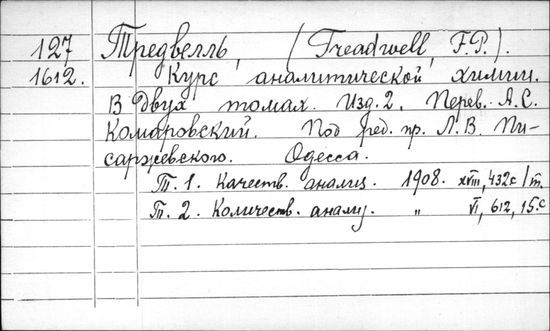 127 Тредвелль, (Treadwell, F.P.).
1612. Курс аналитической химии.
В двух томах. Изд. 2. Перев. А.С.
Комаровский. Под ред. пр. Л.В. Пи-
саржевского. Одесса.
Т. 1. Качеств. анализ. 1908. XVIII, 432с / т.
Т. 2. Количеств. анализ. " VI, 612, 15.с